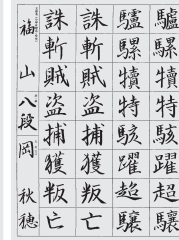 驢騾犢特駭躍超驤
驢騾犢特駭躍超驤
誅斬賊盗捕獲叛亡
誅斬賊盗捕獲叛亡
福山 八段 岡 秋穂